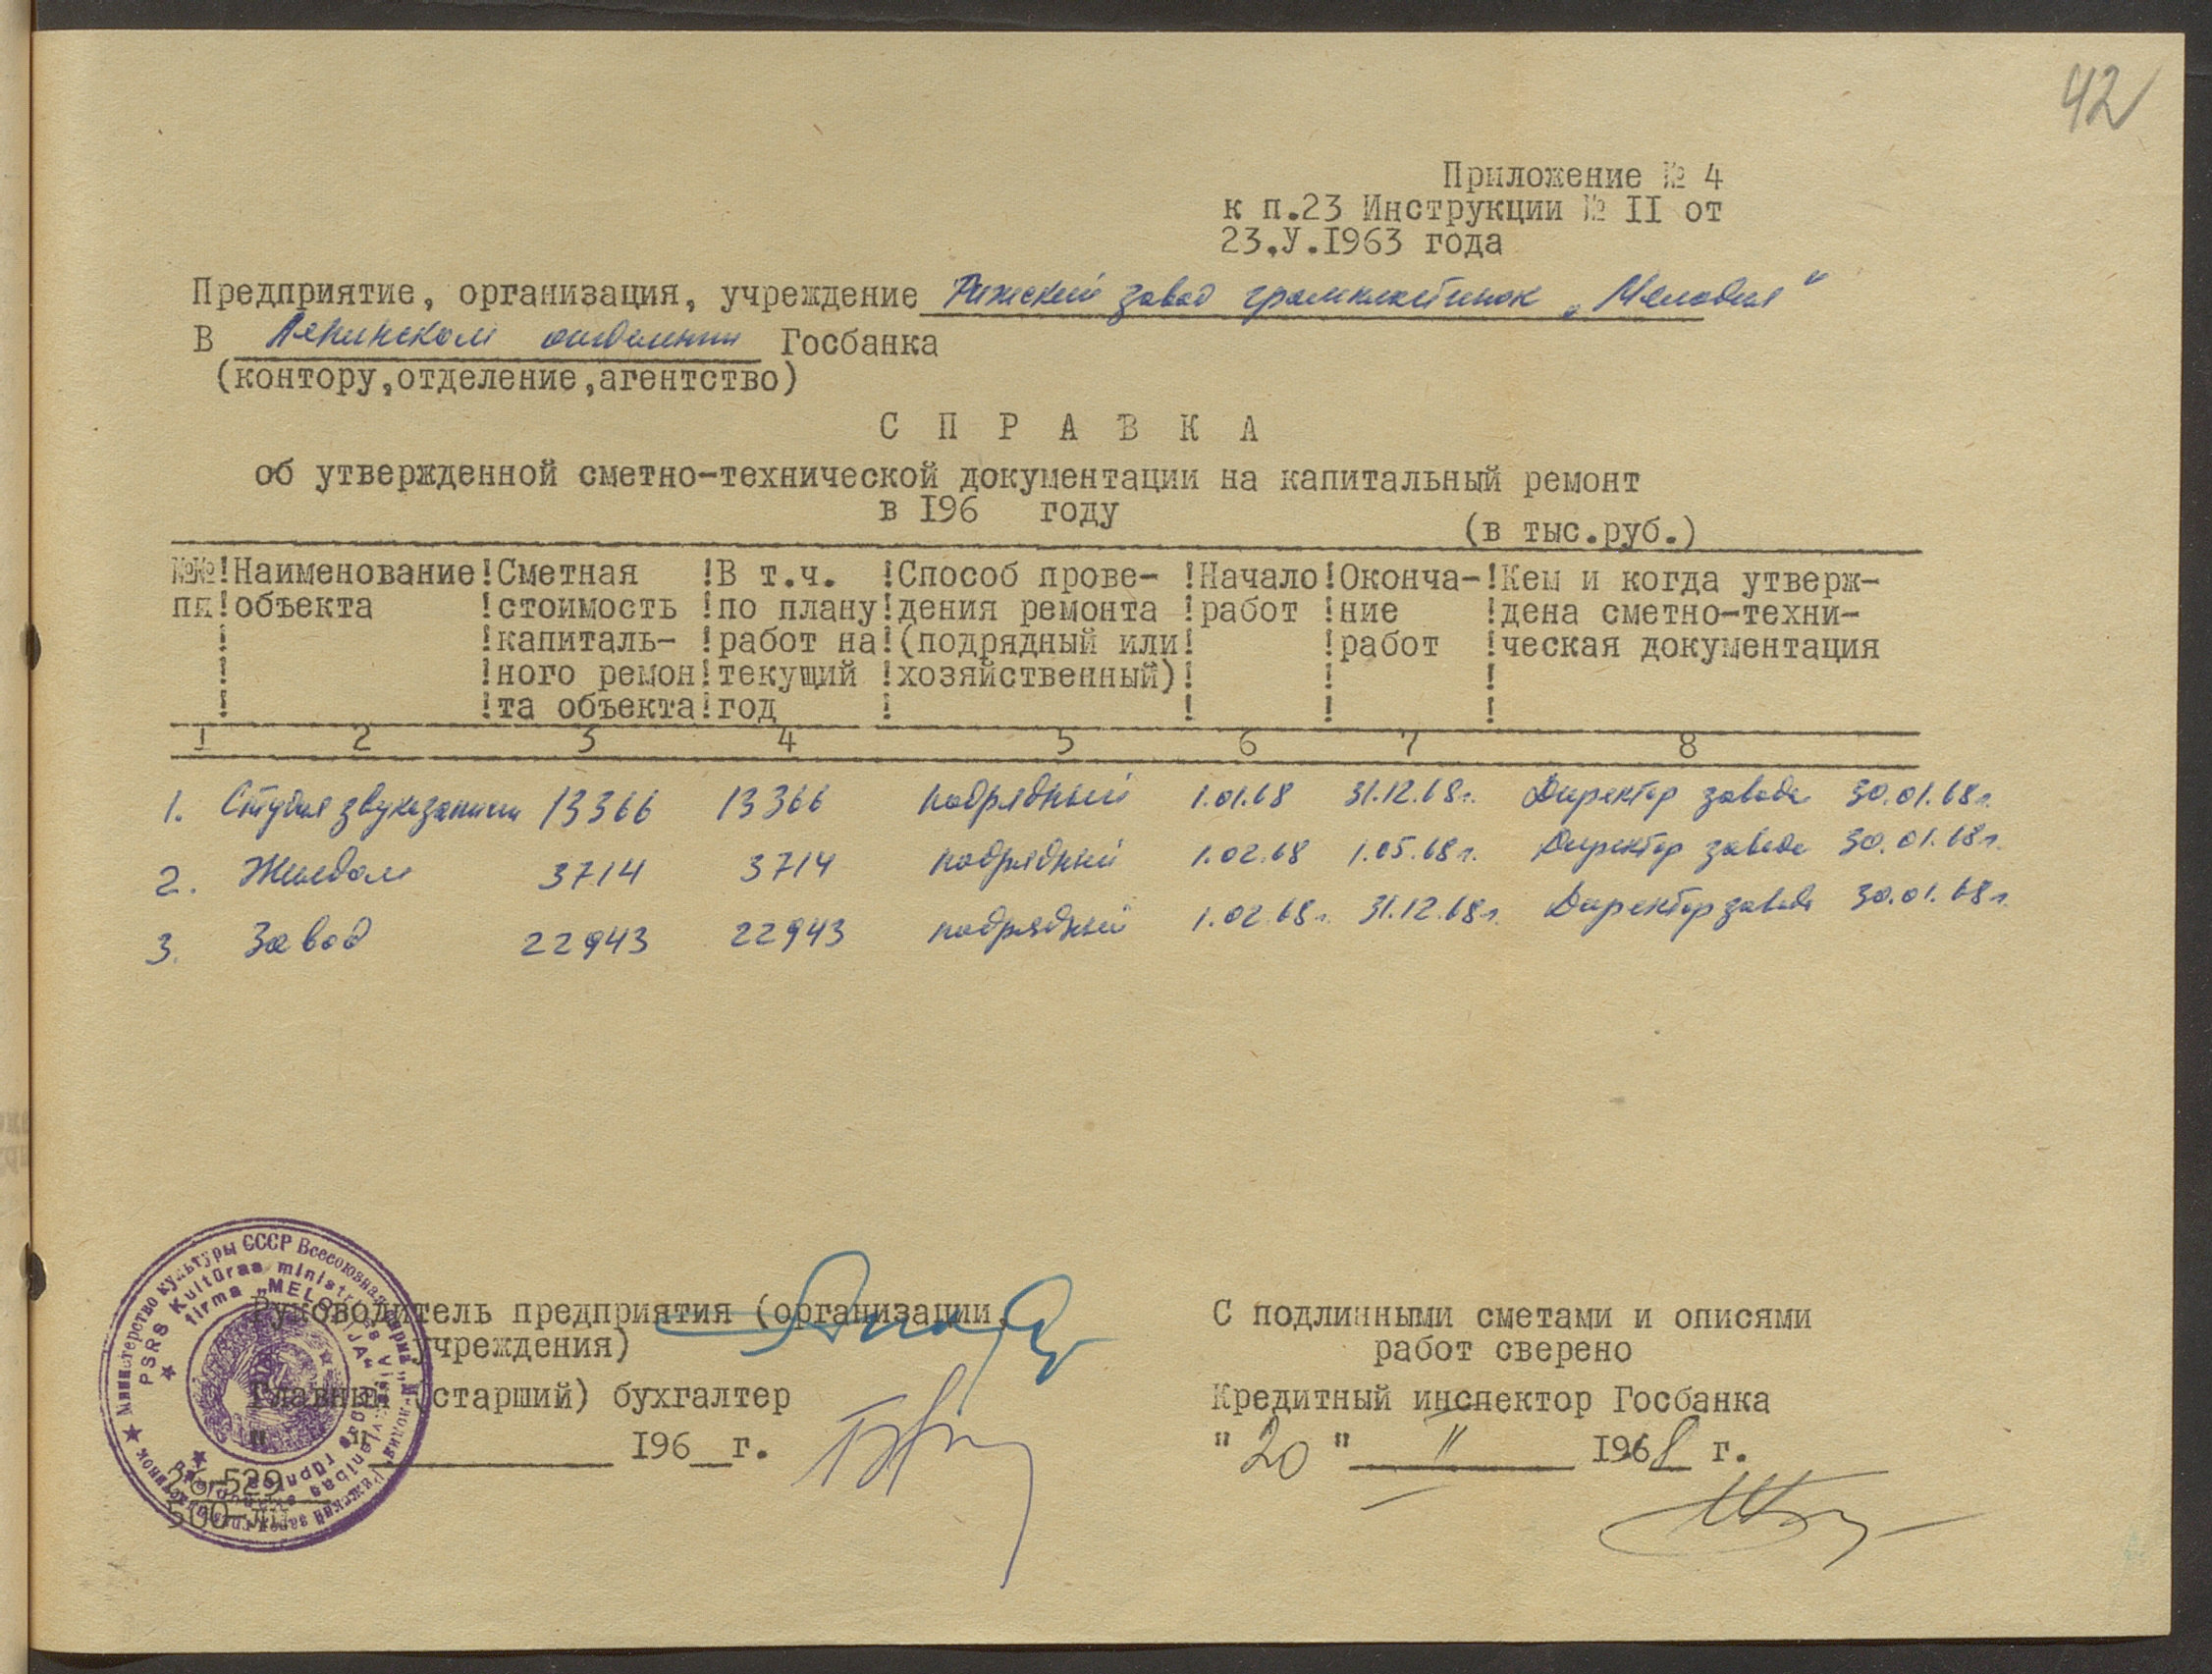 42
Приложение № 4
к п.23 Инструкции № II от
23.У.I963 года
Предприятие, организация, учреждение Рижский завод грампластинок „Мелодия"
В Ленинском отделении Госбанка
(контору,отделение,агентство)
С П Р А В К А
об утвержденной сметно-технической документации на капитальный ремонт
в I96 году
(в тыс.руб.)
№№!Наименование!Сметная !В т.ч. !Способ прове- !Начало!Оконча-!Кем и когда утверж-
пп!объекта !стоимость !по плану!дения ремонта !работ !ние !дена сметно-техни-
! !капиталь- !работ на!(подрядный или! !работ !ческая документация
! !ного ремон!текущий !хозяйственный)! ! !
! !та объекта!год ! ! ! !
1 2 3 4 5 6 7 8
1. Студия звукозаписи 13366 13366 подрядный 1.01.68 31.12.68г. Директор завода 30.01.68г.
2. Жилдом 3714 3714 подрядный 1.02.68 1.05.68г. Директор завода 30.01.68г.
3. Завод 22943 22943 подрядный 1.02.68г. 31.12.68г. Директор завода 30.01.68г.
Руководитель предприятия (организации,
учреждения)
Главный (старший) бухгалтер
" " I96 г.
26-529
500-
С подлинными сметами и описями
работ сверено
Кредитный инспектор Госбанка
"20" II I968 г.
Министерство культуры СССР Всесоюзная фирма „Мелодия" Рижский завод грампластинок
PSRS Kultūras ministrijas Vissavienības
firma „MELODIJA"